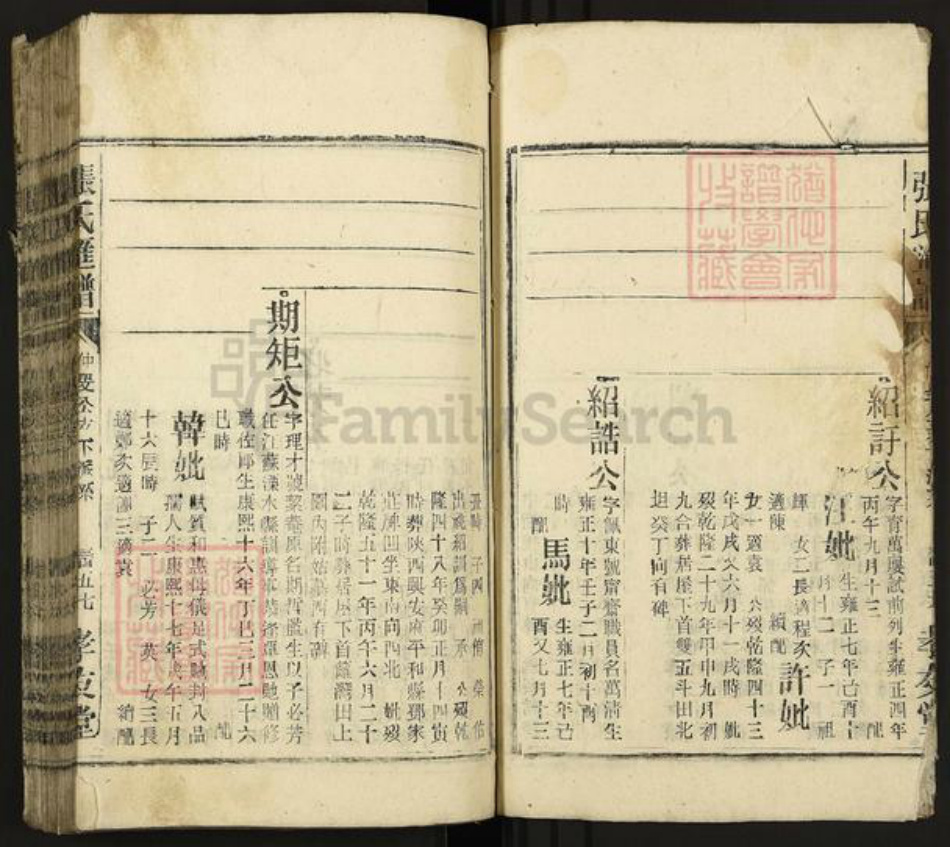 紹訏公
字育萬屢試前列生雍正四年
丙午九月十三
配
汪妣
生雍正七年己酉十
月十二
子一
祖
輝
女二長適程次
適陳
續配
許妣
女一適袁
公歿乾隆四十三
年戊戌又六月十一戌時
妣
歿乾隆二十九年甲申九月初
九合葬居屋下首雙五斗田北
坦癸丁向有碑
紹誥公
字佩東號甯齋職員名萬清生
雍正十年壬子二月初十酉
時
配
馬妣
生雍正七年己
酉又七月十三
丑時
子四
榮
佑
出繼紹訓為嗣
承
公歿乾
隆四十八年癸卯正月十四寅
時葬陝西興安府平和縣鄧家
莊牌凹坐東南向西北
妣歿
乾隆五十一年丙午六月二十
二子時葬居屋下首羅灣田上
園內附姑墓西有碑
期矩公
字理才號絜菴原名期哲監生以子必芳
任江蘇溧水縣訓導
恩貤贈修
職佐郎生康熙十六年丁巳三月二十六
巳時
配
韓妣
賦質和惠母儀足式貤封八品
孺人生康熙十七年戊午五月
十六辰時
子二
必芳
英
女三長
適鄭次適邵三適袁
續配
張氏進譜
仲受公房下派系
卷五七
孝友堂
FamilySearch